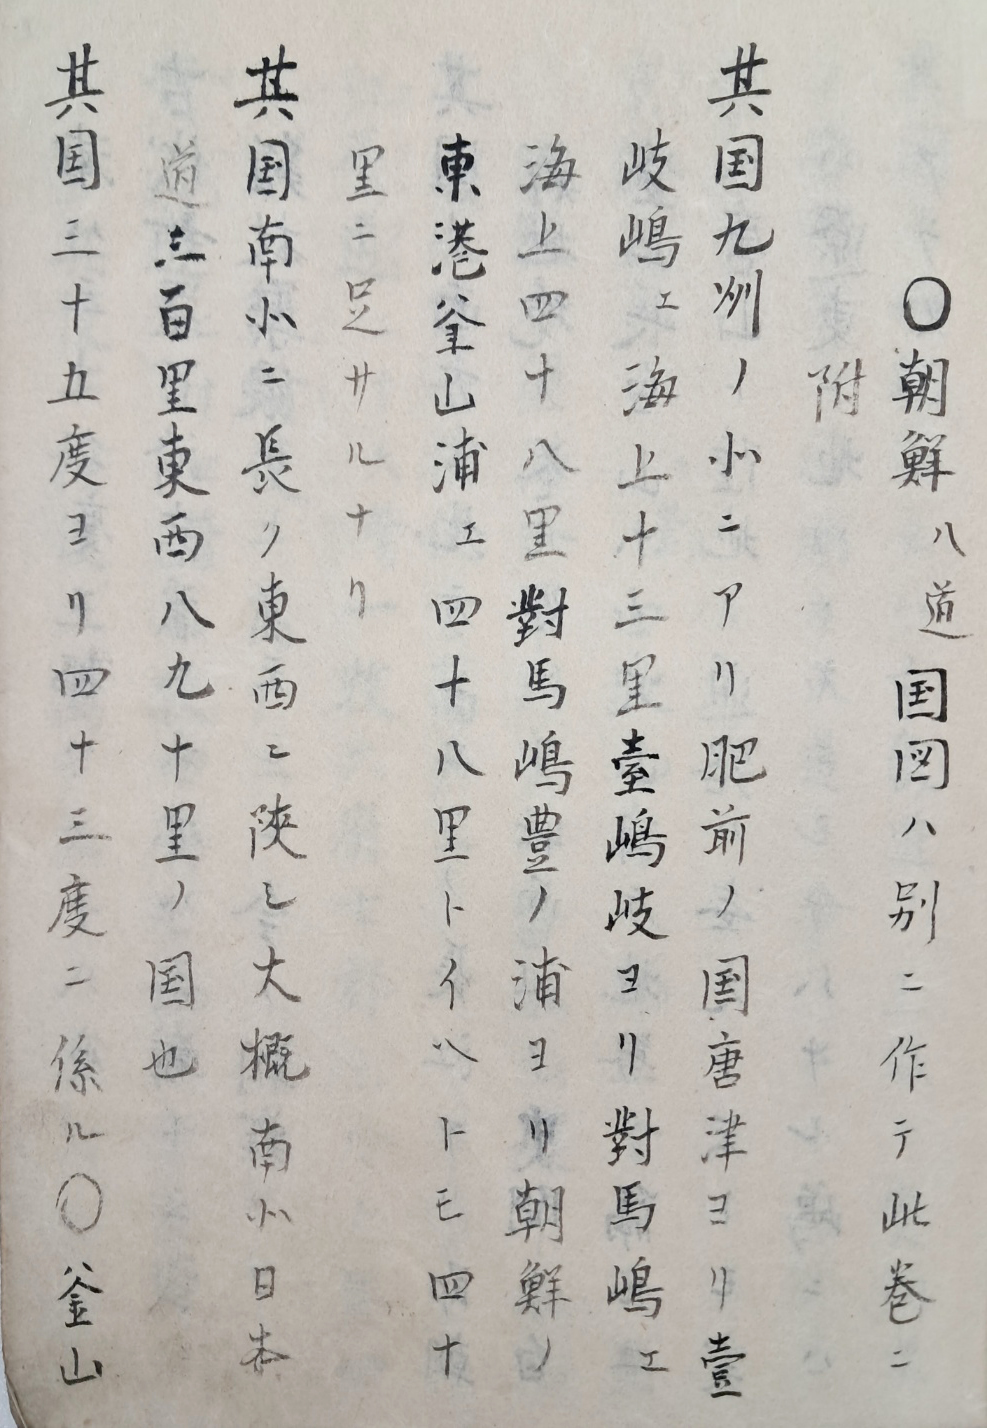 〇朝鮮 八道国図ハ別ニ作テ此巻ニ
附
其国九州ノ北ニアリ肥前ノ国唐津ヨリ壹
岐嶋エ海上十三里臺嶋岐ヨリ對馬嶋エ
海上四十八里對馬嶋豊ノ浦ヨリ朝鮮ノ
東港釜山浦エ四十八里トイヘトモ四十
里ニ足サルナリ
其国南北ニ長ク東西ニ陜シ大概南北日本
道三百里東西八九十里ノ国也
其国三十五度ヨリ四十三度ニ係ル〇釜山